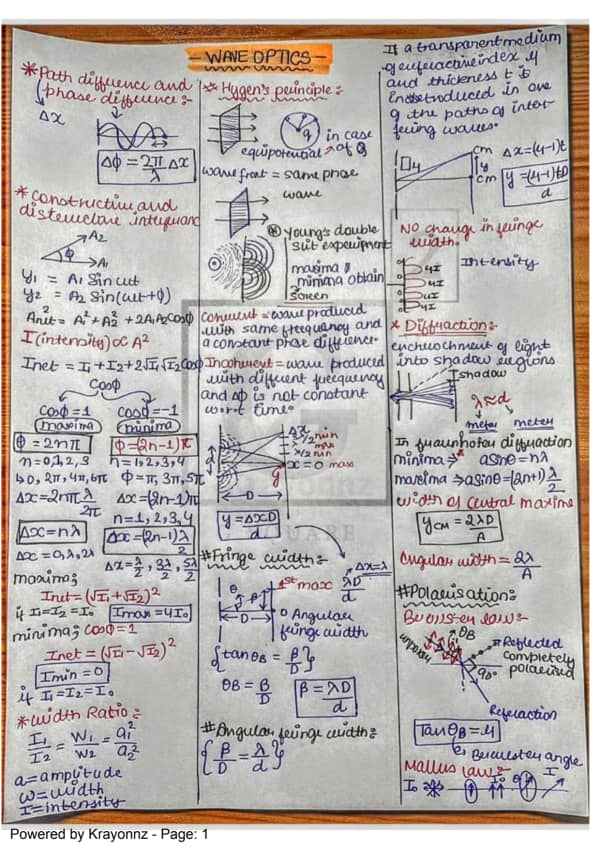 - WAVE OPTICS -
*Path difference and
phase difference:-
Δx
Δϕ = 2π/λ Δx
* Constructive and
distructive interference
A2
ϕ
A1
y1 = A1 Sin wt
y2 = A2 Sin(wt+ϕ)
Anet² = A1²+A2²+2A1A2cosϕ
I(intensity) ∝ A²
Inet = I1+I2+2√I1√I2 cosϕ
Cosϕ
Cosϕ=1 Cosϕ=-1
(maxima) (minima)
ϕ = 2nπ ϕ=(2n-1)π
n=0,1,2,3 n=1,2,3,4
↳0, 2π, 4π, 6π ϕ=π, 3π, 5π
Δx=2nπ λ/2π Δx=(2n-1)π
n=1,2,3,4
Δx=nλ Δx=(2n-1)λ/2
Δx=0,λ,2λ Δx=λ/2, 3λ/2, 5λ/2
maxima;
Inet=(√I1+√I2)²
if I1=I2=I0 Imax=4I0
minima; cosϕ=1
Inet=(√I1-√I2)²
Imin=0
if I1=I2=I0
*Width Ratio:-
I1/I2 = W1/W2 = a1²/a2²
a=amplitude
w=width
I=intensity
** Hygen's principle:-
q
in case
equipotential of Q
wave front = same phase
wave
* Young's double
slit experiment
maxima &
minima obtain
screen
Coherent = wave produced
with same frequency and
a constant phase difference.
Incoherent = wave produced
with different frequency
and Δϕ is not constant
w.r.t time.
Δx
3λ/2 min
λ/2 min
x=0 max
y
D
y=ΔxD/d
#Fringe width:-
Δx=λ
1st max λD/d
θ β
D
0 Angular
fringe width
{tanθB = β/D}
θB = β/D β = λD/d
#Angular fringe width:-
{β/D = λ/d}
If a transparent medium
of refractive index μ
and thickness t is
introduced in one
of the paths of inter-
fering waves.
cm Δx=(μ-1)t
μ y
cm y=(μ-1)tD/d
No change in fringe
width.
Intensity
4I
4I
4I
4I
* Diffraction:-
encroachment of light
into shadow regions
shadow
λ≈d
meter meter
In fraunhofer diffraction
minima → asinθ=nλ
maxima → asinθ=(2n+1)λ/2
width of central maxima
yCM = 2λD/A
Angular width = 2λ/A
#Polarisation:-
Brewster law:-
unpolar
θB
Reflected
completely
polarised
90°
Refraction
Tan θB = μ
Brewster angle
Mallus law:-
I0 I0 θ I
Powered by Krayonnz - Page: 1